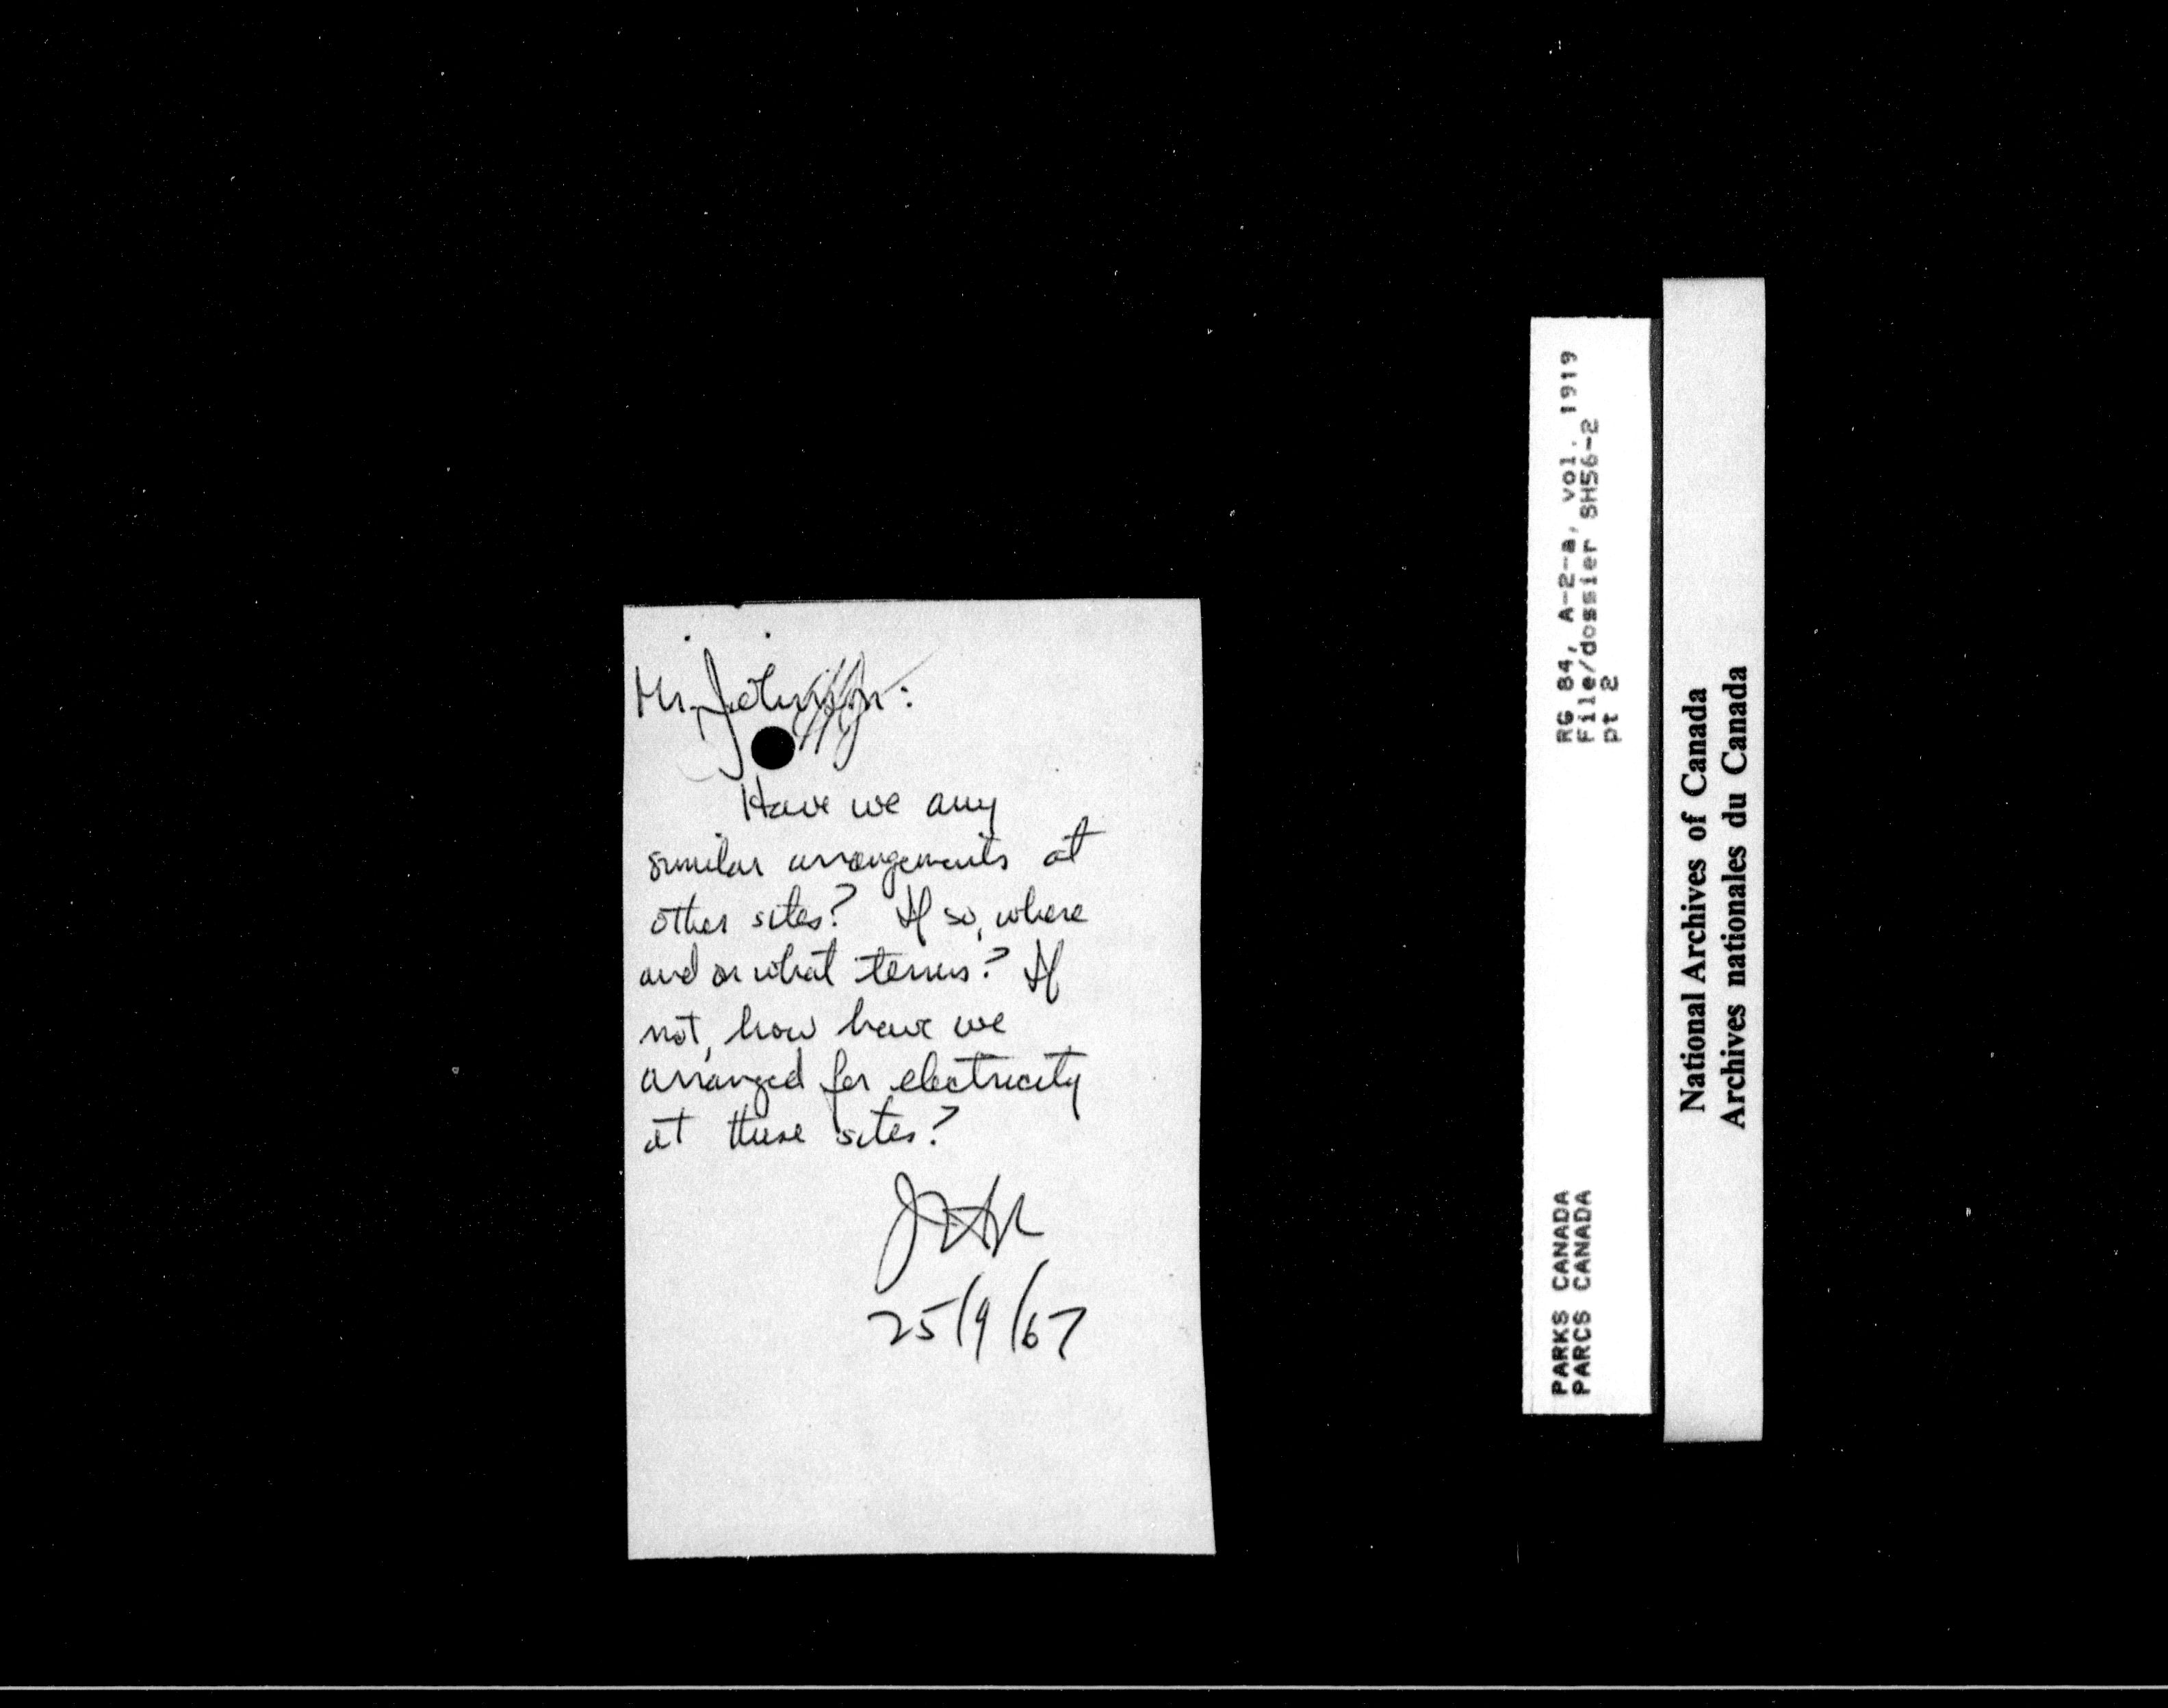 Mr. Johnson:
Have we any
similar arrangements at
other sites? If so, where
and on what terms? If
not, how have we
arranged for electricity
at these sites?
25/9/67
RG 84, A-2-a, vol. 1919
File/dossier 8H56-2
pt 2
PARKS CANADA
PARCS CANADA
National Archives of Canada
Archives nationales du Canada